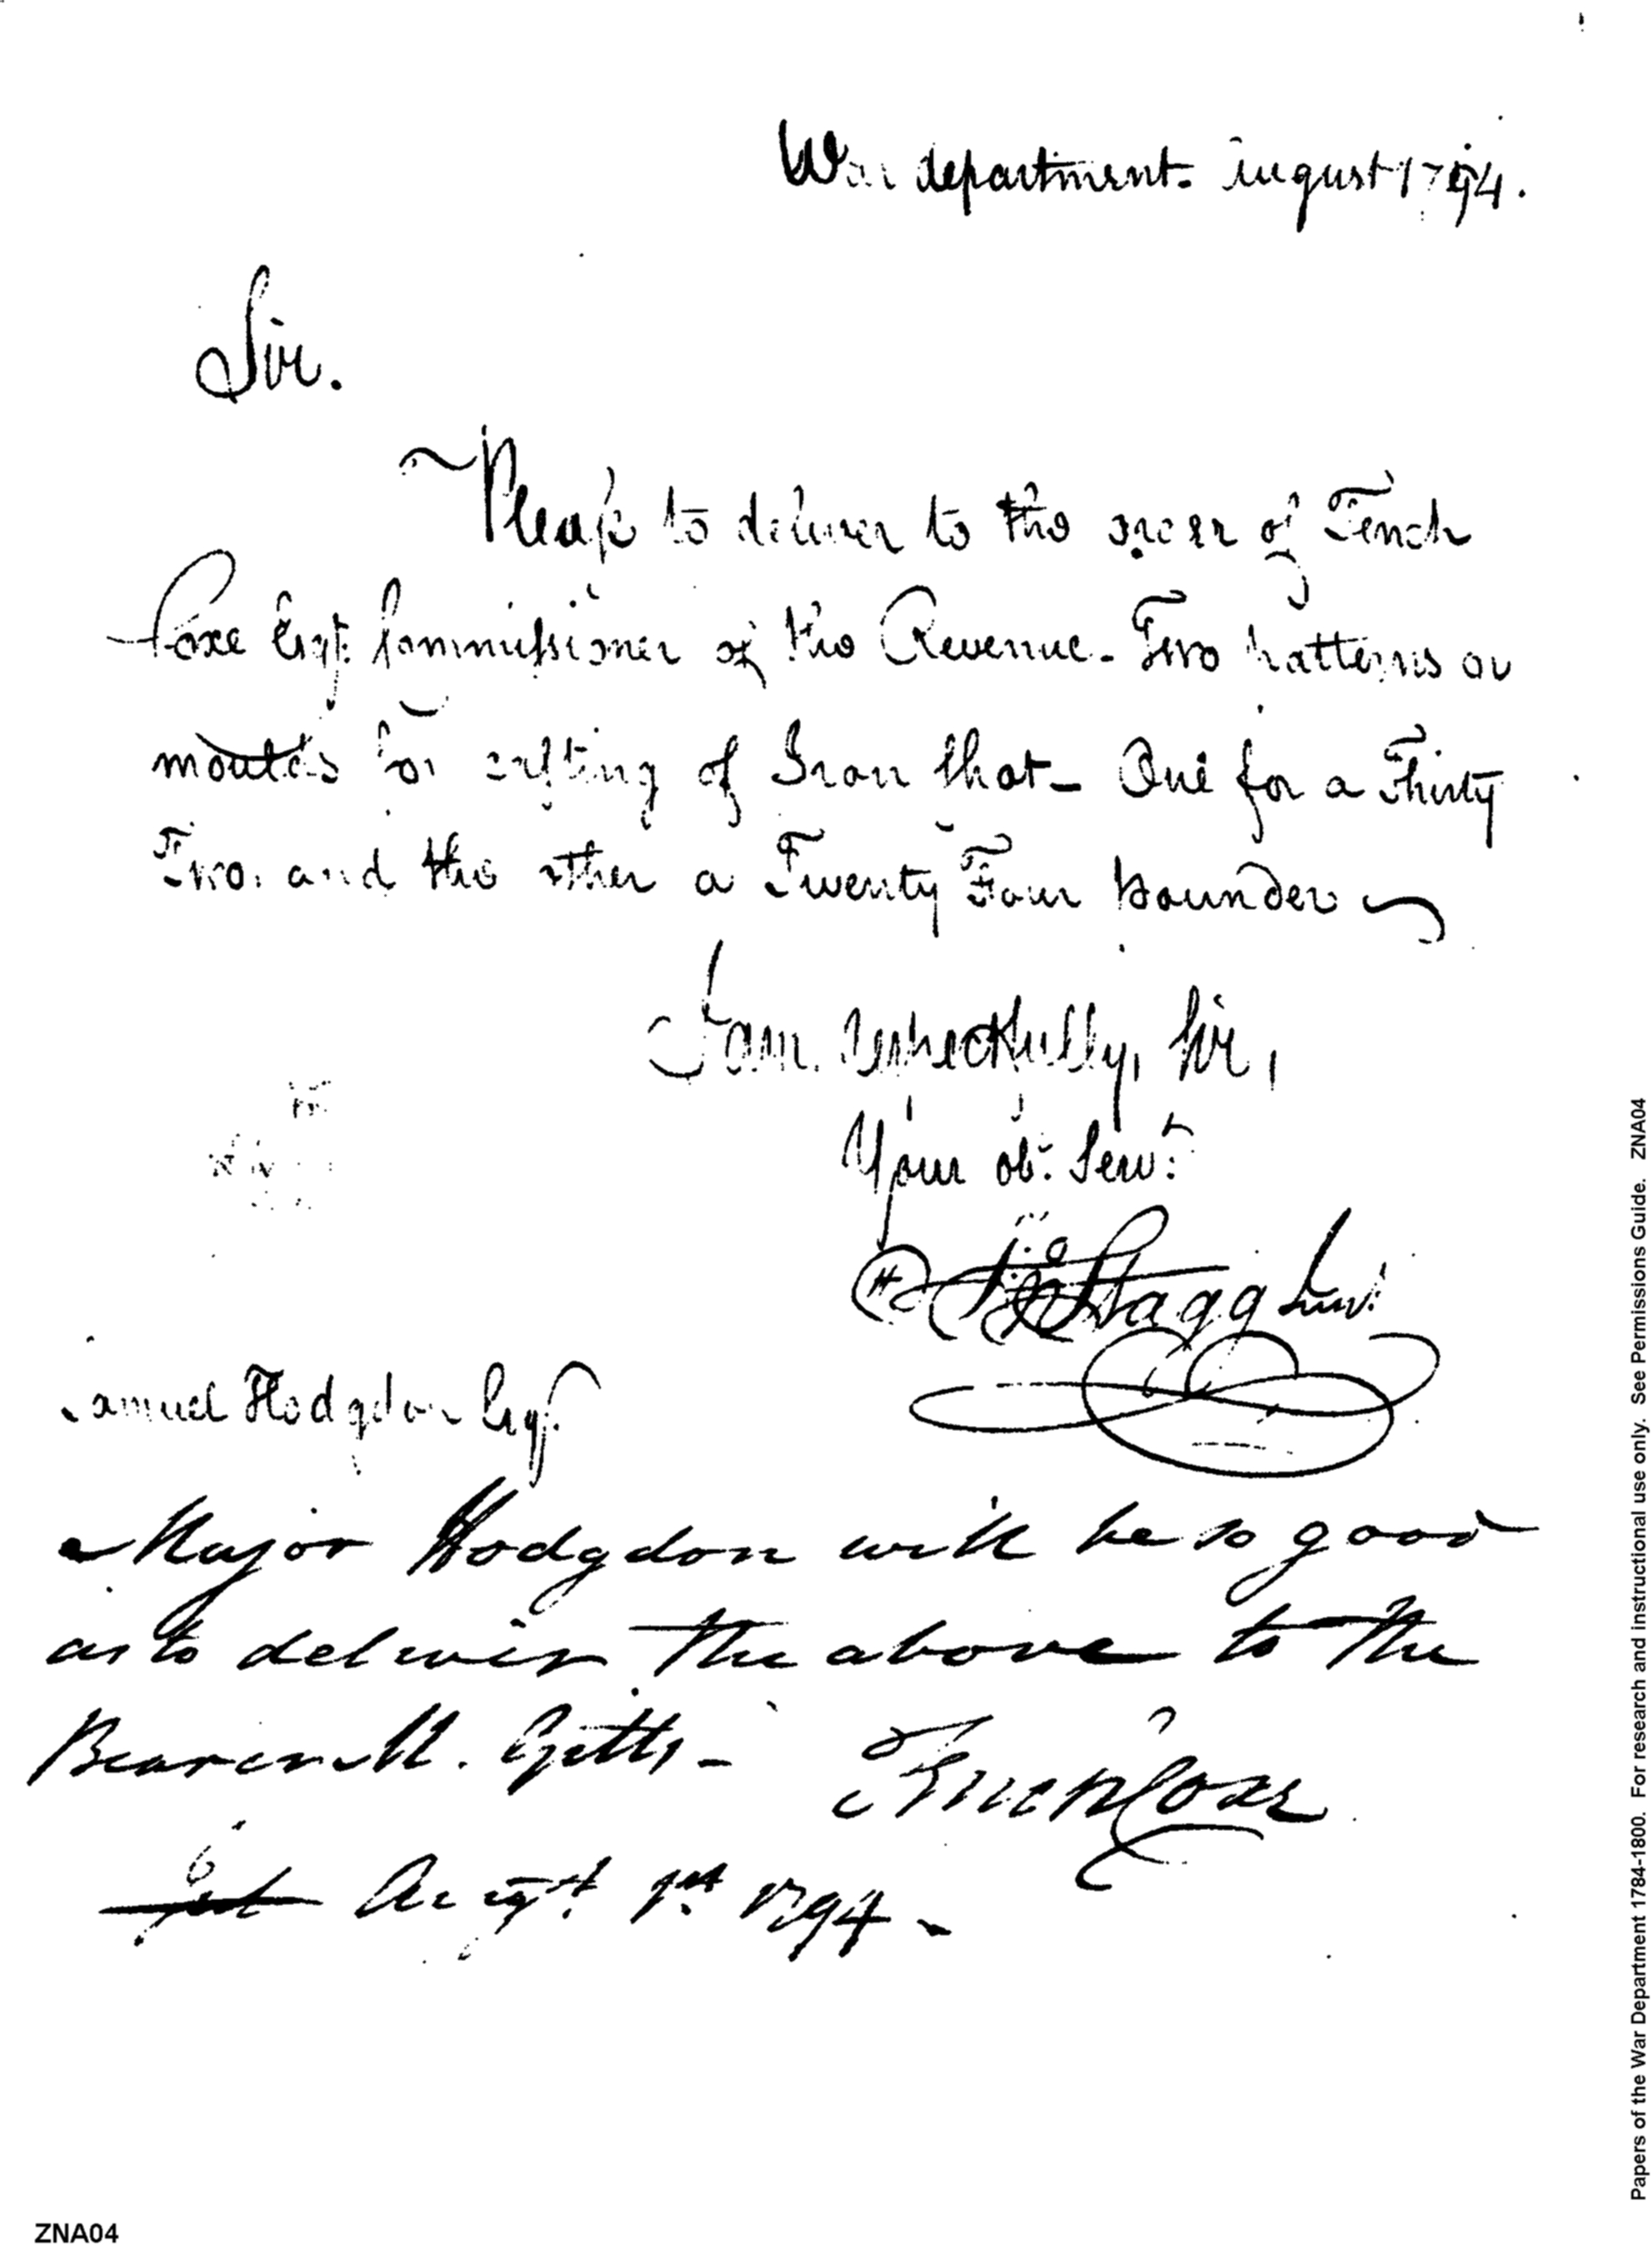 War department. August 1794.
Sir.
Please to deliver to the order of Tench
Coxe Esqr. Commissioner of the Revenue - Two patterns or
moulds for casting of Iron shot - One for a Thirty
Two. and the other a Twenty Four pounder
I am. respectfully, Sir,
Your ob. Servt.
Jno Stagg Junr.
Samuel Hodgdon Esqr.
Major Hodgdon will be so good
as to deliver the above to the
Bearer Mr. Getts -
Tench Coxe
Augst. 1st 1794 -
ZNA04
Papers of the War Department 1784-1800. For research and instructional use only. See Permissions Guide. ZNA04